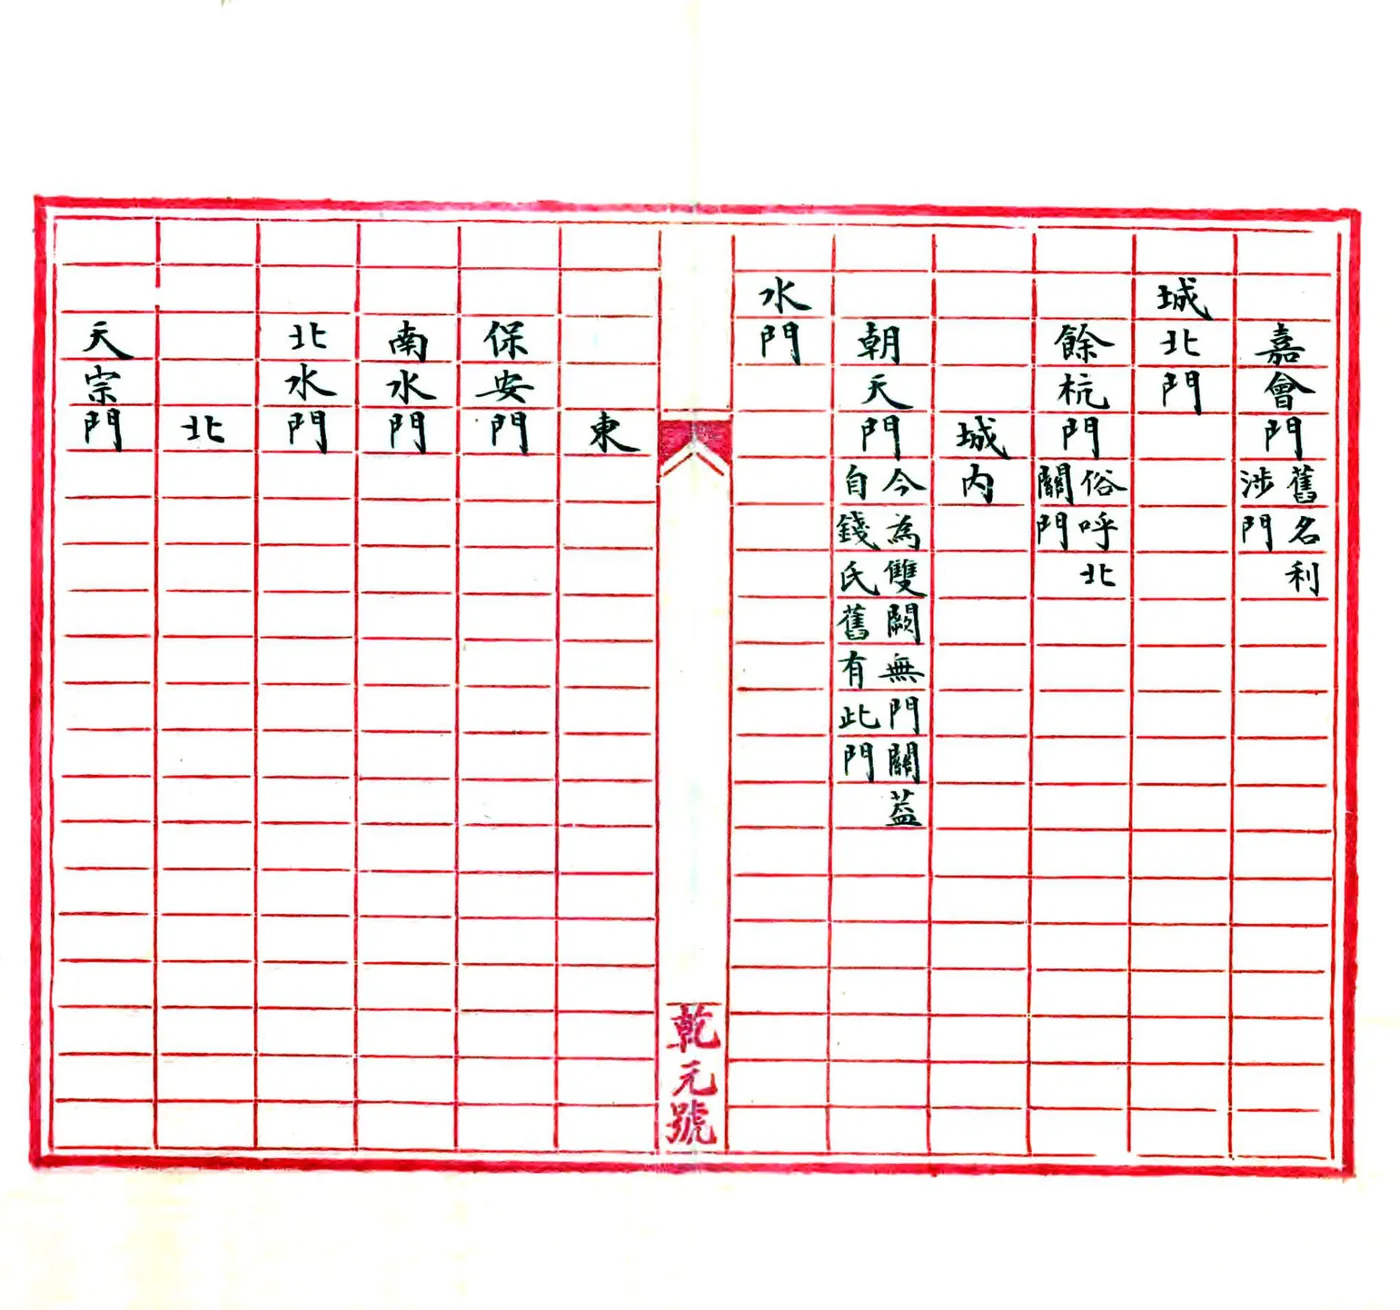 嘉會門舊名利涉門
城北門
餘杭門俗呼北關門
城内
朝天門今為雙闕無門關蓋自錢氏舊有此門
水門
乾元號
東
保安門
南水門
北水門
北
天宗門